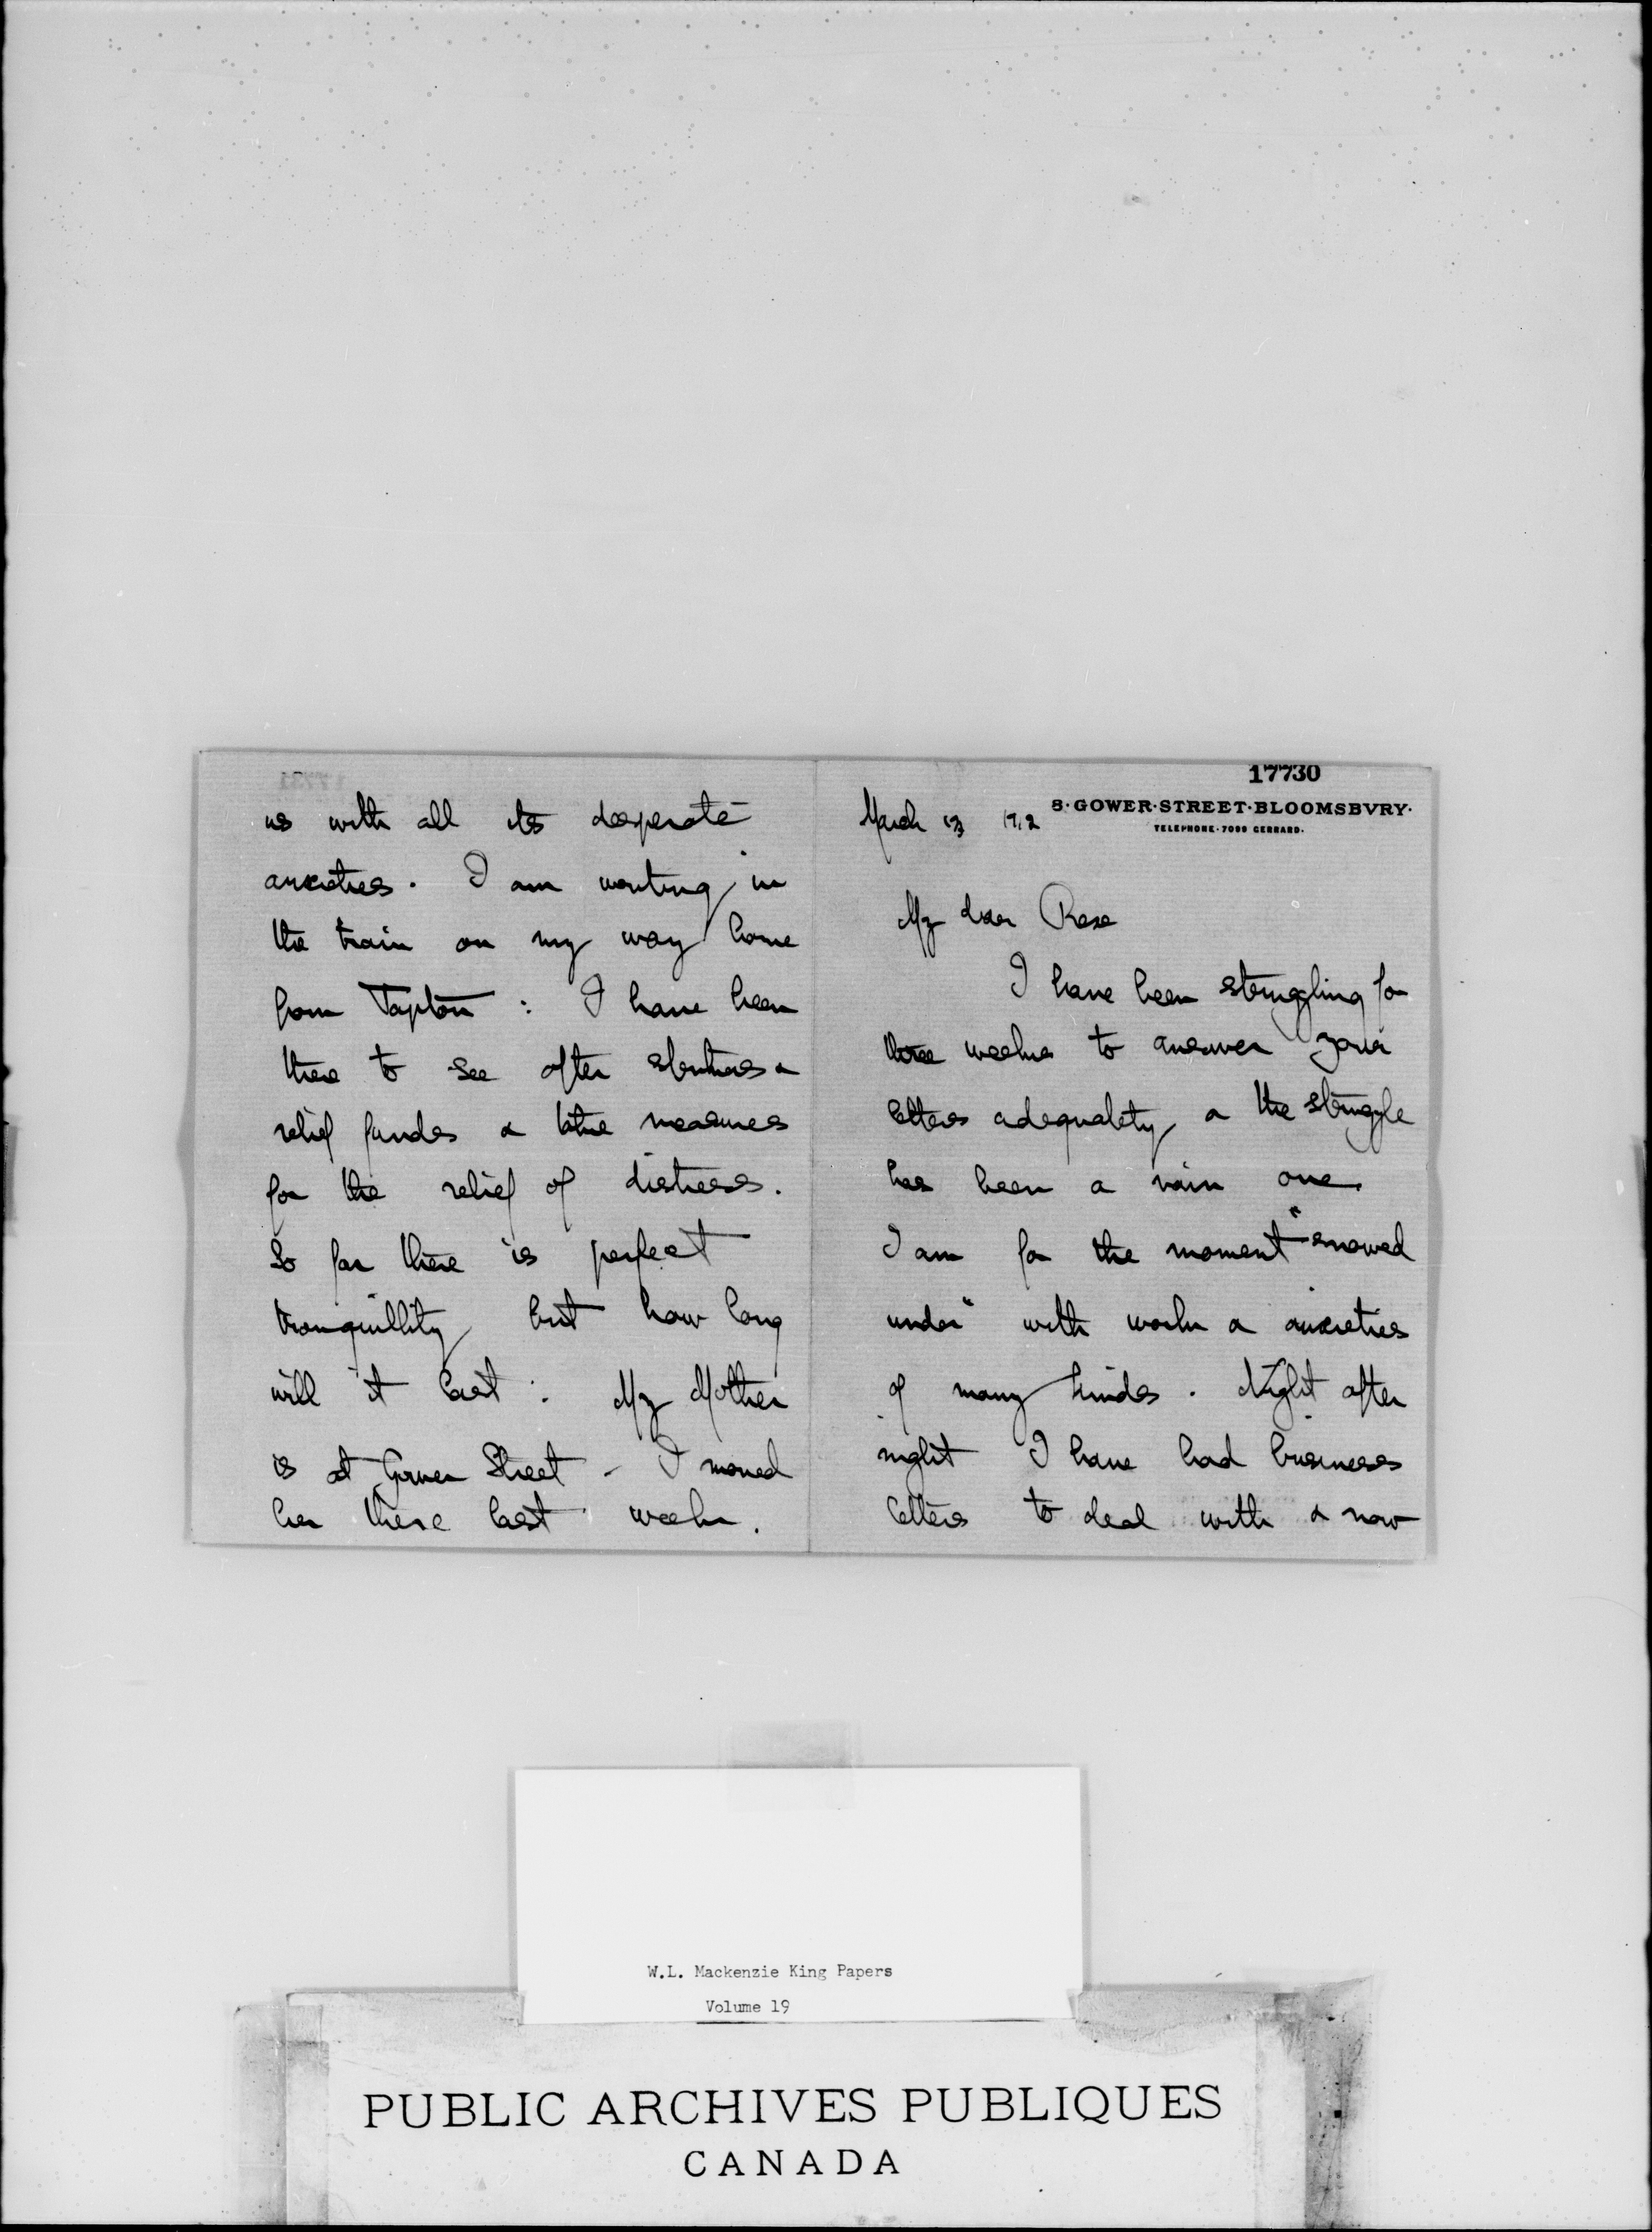 17730
8·GOWER·STREET·BLOOMSBVRY·
TELEPHONE·7099 GERRARD·
March 13 1912
My dear Rex
I have been struggling for
three weeks to answer your
letters adequately, & the struggle
has been a vain one.
I am for the moment "snowed
under" with work & anxieties
of many kinds. Night after
night I have had business
letters to deal with & now
us with all its desperate
anxieties. I am writing in
the train on my way home
from Tapton: I have been
there to see after &
relief funds & measures
for the relief of distress.
So far there is perfect
tranquillity but how long
will it last: My Mother
is at Gower Street - I moved
her there last week.
W.L. Mackenzie King Papers
Volume 19
PUBLIC ARCHIVES PUBLIQUES
CANADA